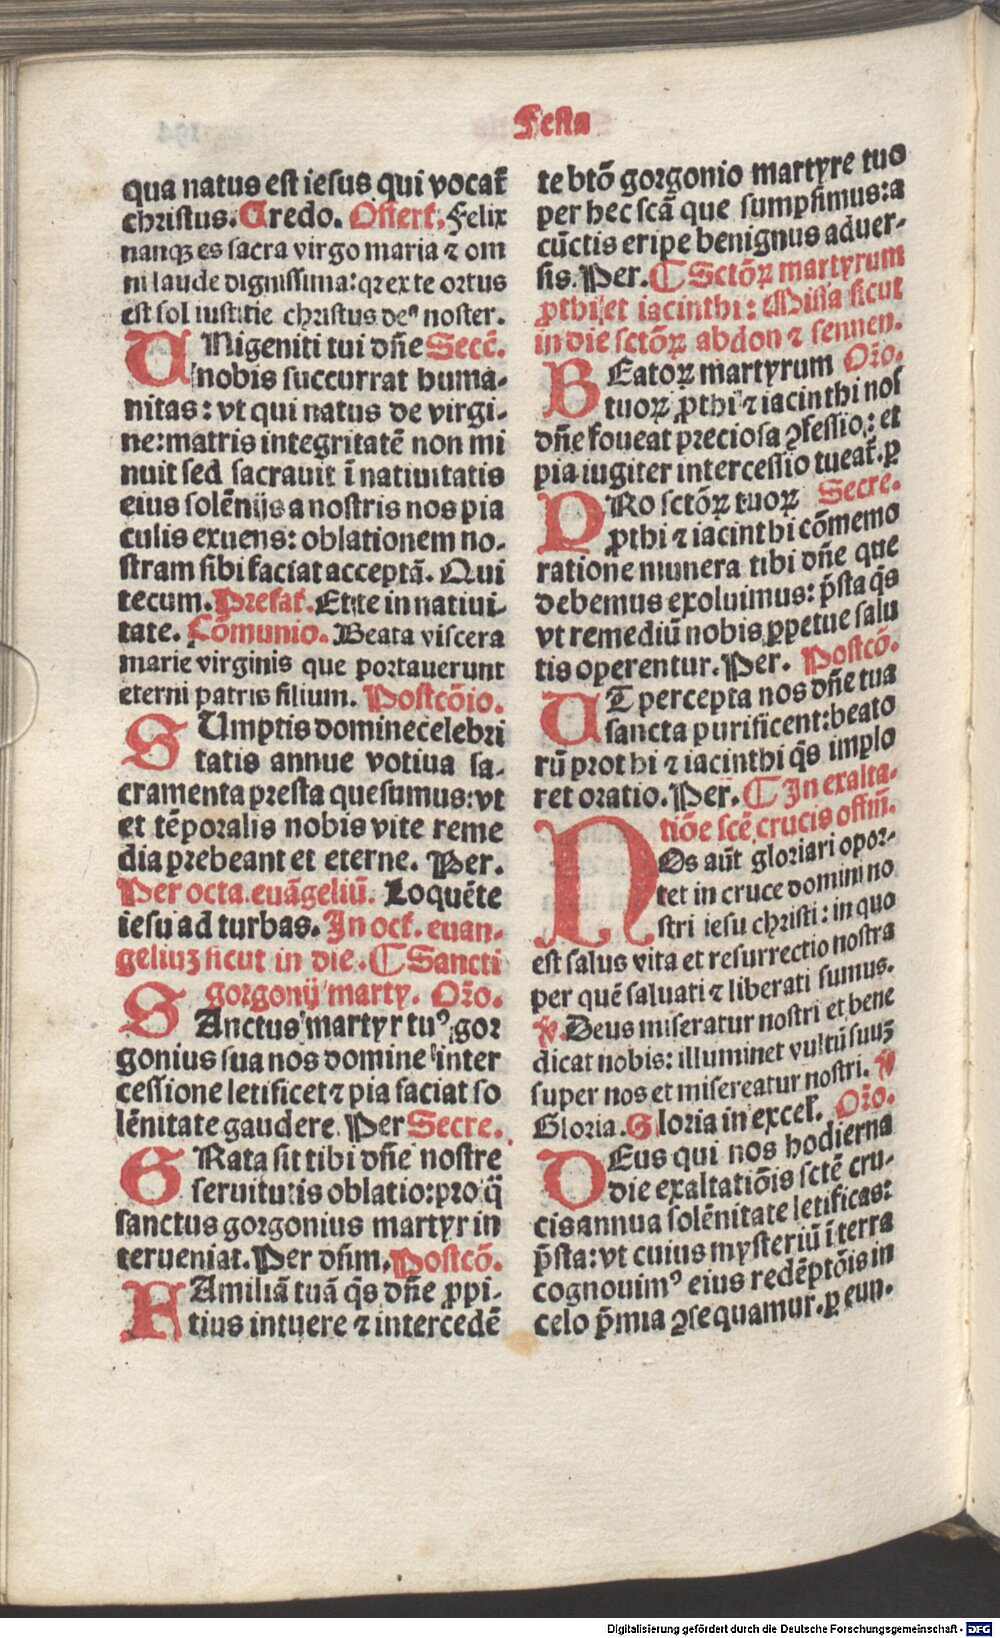 Festa
qua natus est iesus qui vocat̃
christus. Credo. Offert̃. Felix
nanqꝫ es sacra virgo maria ⁊ om
ni laude dignissima: qꝛ ex te ortus
est sol iustitie christus deꝰ noster.
UNigeniti tui dñe Secẽ.
nobis succurrat huma-
nitas: vt qui natus de virgi-
ne: matris integritatẽ non mi
nuit sed sacrauit ĩ natiuitatis
eius solẽnijs a nostris nos pia
culis exuens: oblationem no-
stram sibi faciat acceptã. Qui
tecum. Prefat̃. Et te in natiui-
tate. Cõmunio. Beata viscera
marie virginis que portauerunt
eterni patris filium. Postcõio.
SUmptis domine celebri
tatis annue votiua sa-
cramenta presta quesumus: vt
et tẽporalis nobis vite reme
dia prebeant et eterne. Per.
Per octa. euãgeliũ. Loquẽte
iesu ad turbas. In oct̃. euan-
geliuꝫ sicut in die. ¶ Sancti
gorgonij marty. Oꝛõ.
SAnctus martyr tuꝰ gor
gonius sua nos domine inter
cessione letificet ⁊ pia faciat so
lẽnitate gaudere. Per Secre.
GRata sit tibi dñe nostre
seruitutis oblatio: pro q̃
sanctus gorgonius martyr in
terueniat. Per dñm. Postcõ.
FAmiliã tuã q̃s dñe ꝓpi-
tius intuere ⁊ intercedẽ
te btõ gorgonio martyre tuo
per hec scã que sumpsimus: a
cũctis eripe benignus aduer-
sis. Per. ¶ Sctõꝝ martyrum
ꝓthi et iacinthi: Missa sicut
in die sctõꝝ abdon ⁊ sennen.
BEatoꝝ martyrum Oꝛõ.
tuoꝝ ꝓthi ⁊ iacinthi nos
dñe foueat preciosa ꝯfessio: et
pia iugiter intercessio tueat̃. ꝑ
PRo sctõꝝ tuoꝝ Secre.
ꝓthi ⁊ iacinthi cõmemo
ratione munera tibi dñe que
debemus exoluimus: p̃sta q̃s
vt remediũ nobis ꝑpetue salu
tis operentur. Per. Postcõ.
UT percepta nos dñe tua
sancta purificent: beato
rũ prothi ⁊ iacinthi q̃s implo
ret oratio. Per. ¶ In exalta-
tiõe scẽ crucis offm̃.
NOs aũt gloriari opor-
tet in cruce domini no
stri iesu christi: in quo
est salus vita et resurrectio nostra
per quẽ saluati ⁊ liberati sumus.
℣. Deus miseratur nostri et bene
dicat nobis: illuminet vultũ suuꝫ
super nos et misereatur nostri. ℣
Gloria. Gloria in excel̃. Oꝛõ.
DEus qui nos hodierna
die exaltatiõis sctẽ cru-
cis annua solẽnitate letificas:
p̃sta: vt cuius mysteriũ ĩ terra
cognouimꝰ eius redẽptõis in
celo p̃mia ꝯsequamur. ꝑ eun.
Digitalisierung gefördert durch die Deutsche Forschungsgemeinschaft - DFG